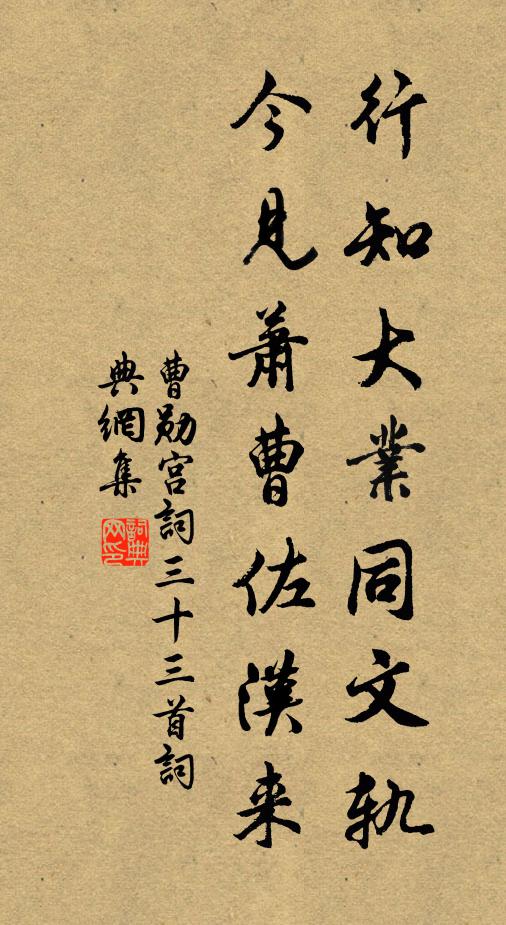 行知大業同文軌
今見蕭曹佐漢来
曹勛宫詞三十三首詞
典網集
詞典網印